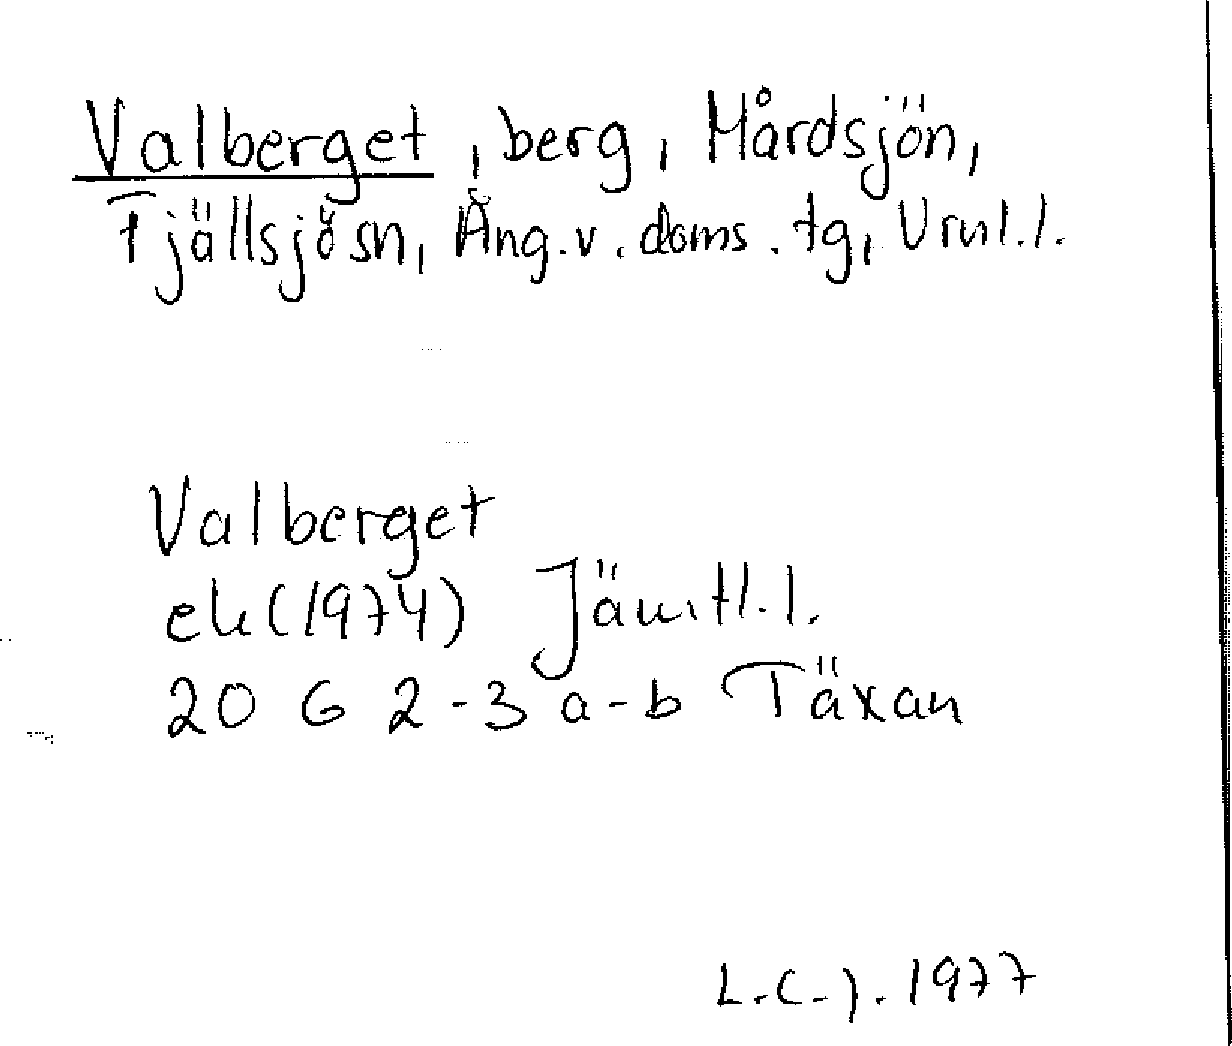 Valberget, berg, Mårdsjön,
Fjällsjösn, Ång.v. doms. tg, Vrnl.l.
Valberget
ek (1974) Jämtl.l.
20 G 2-3 a-b Täxan
L.C.J. 1977